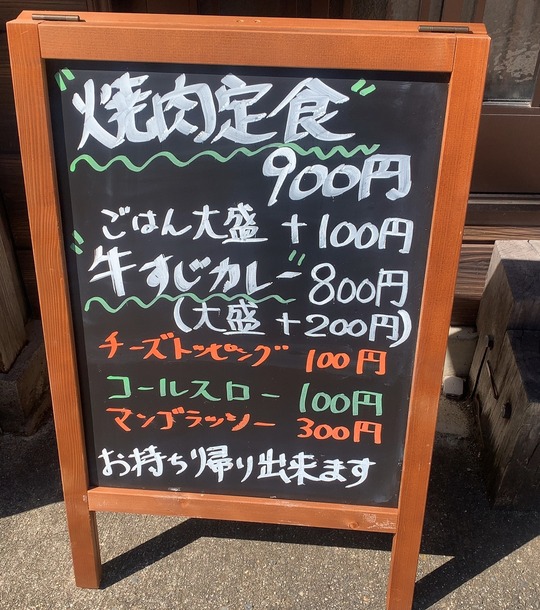 "焼肉定食"
900円
ごはん大盛 +100円
"牛すじカレー" 800円
(大盛 +200円)
チーズトッピング 100円
コールスロー 100円
マンゴラッシー 300円
お持ち帰り出来ます